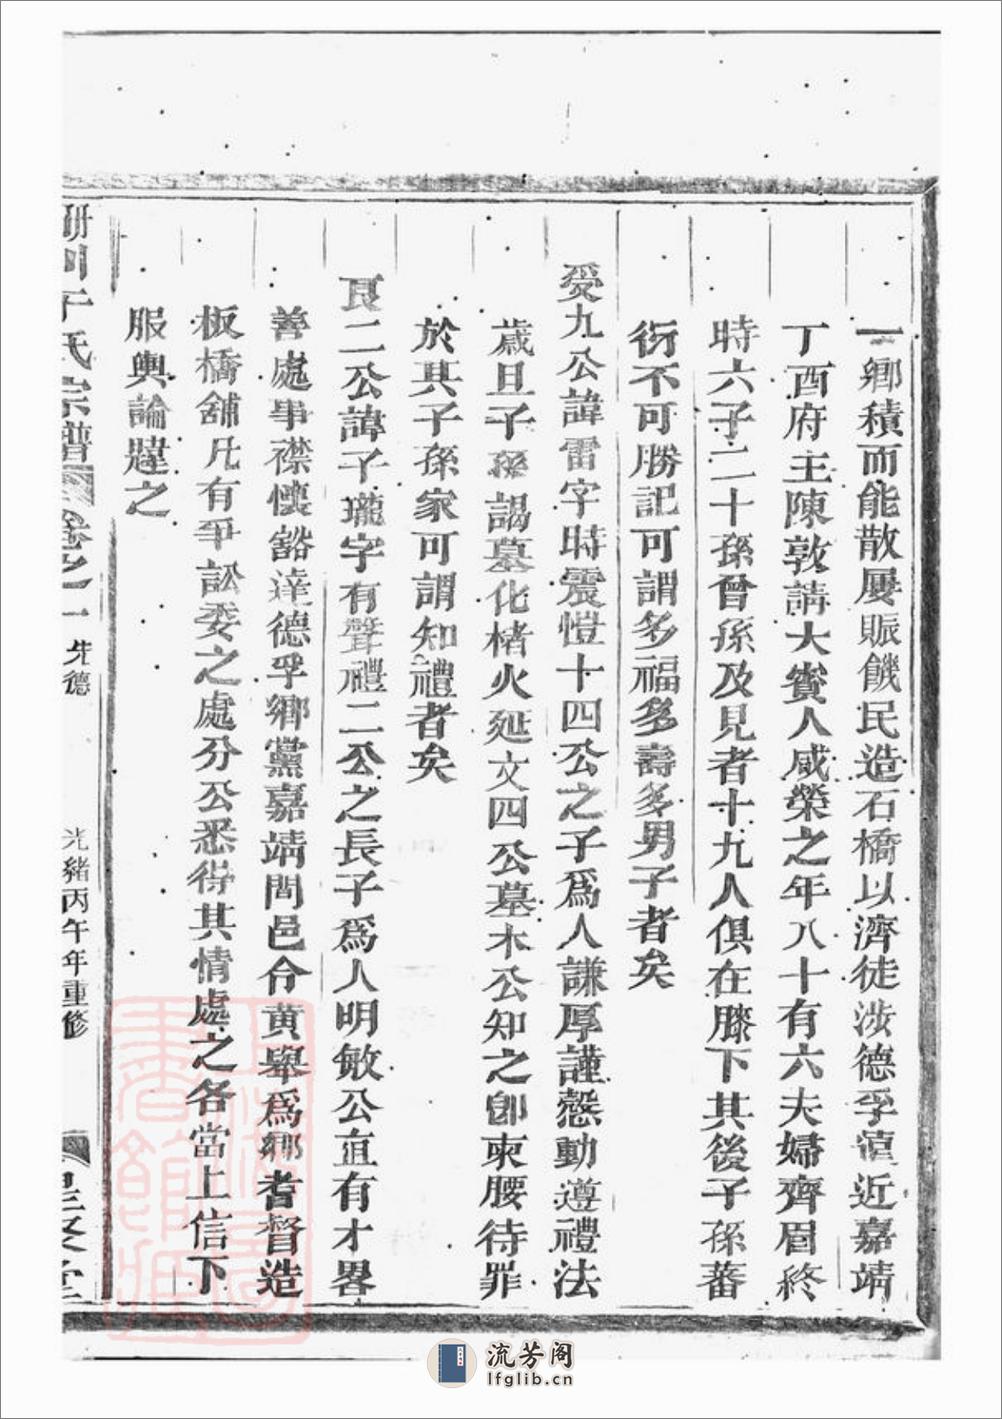 一鄉積而能散屢賑饑民造石橋以濟徒涉德孚遠近嘉靖
丁酉府主陳敦請大賓人咸榮之年八十有六夫婦齊眉終
時六子二十孫曾孫及見者十九人俱在膝下其後子孫蕃
衍不可勝記可謂多福多壽多男子者矣
受九公諱雷字時震愷十四公之子爲人謙厚謹慤動遵禮法
歲旦子孫謁墓化楮火延文四公墓木公知之卽束腰待罪
於其子孫家可謂知禮者矣
良二公諱子瓏字有聲禮二公之長子爲人明敏公直有才畧
善處事襟懷豁達德孚鄉黨嘉靖間邑令黄舉爲鄉耆督造
板橋舖凡有爭訟委之處分公悉得其情處之各當上信下
服輿論韙之
氏宗譜
卷之一
先德
光緒丙午年重修
堂
流芳阁
lfglib.cn